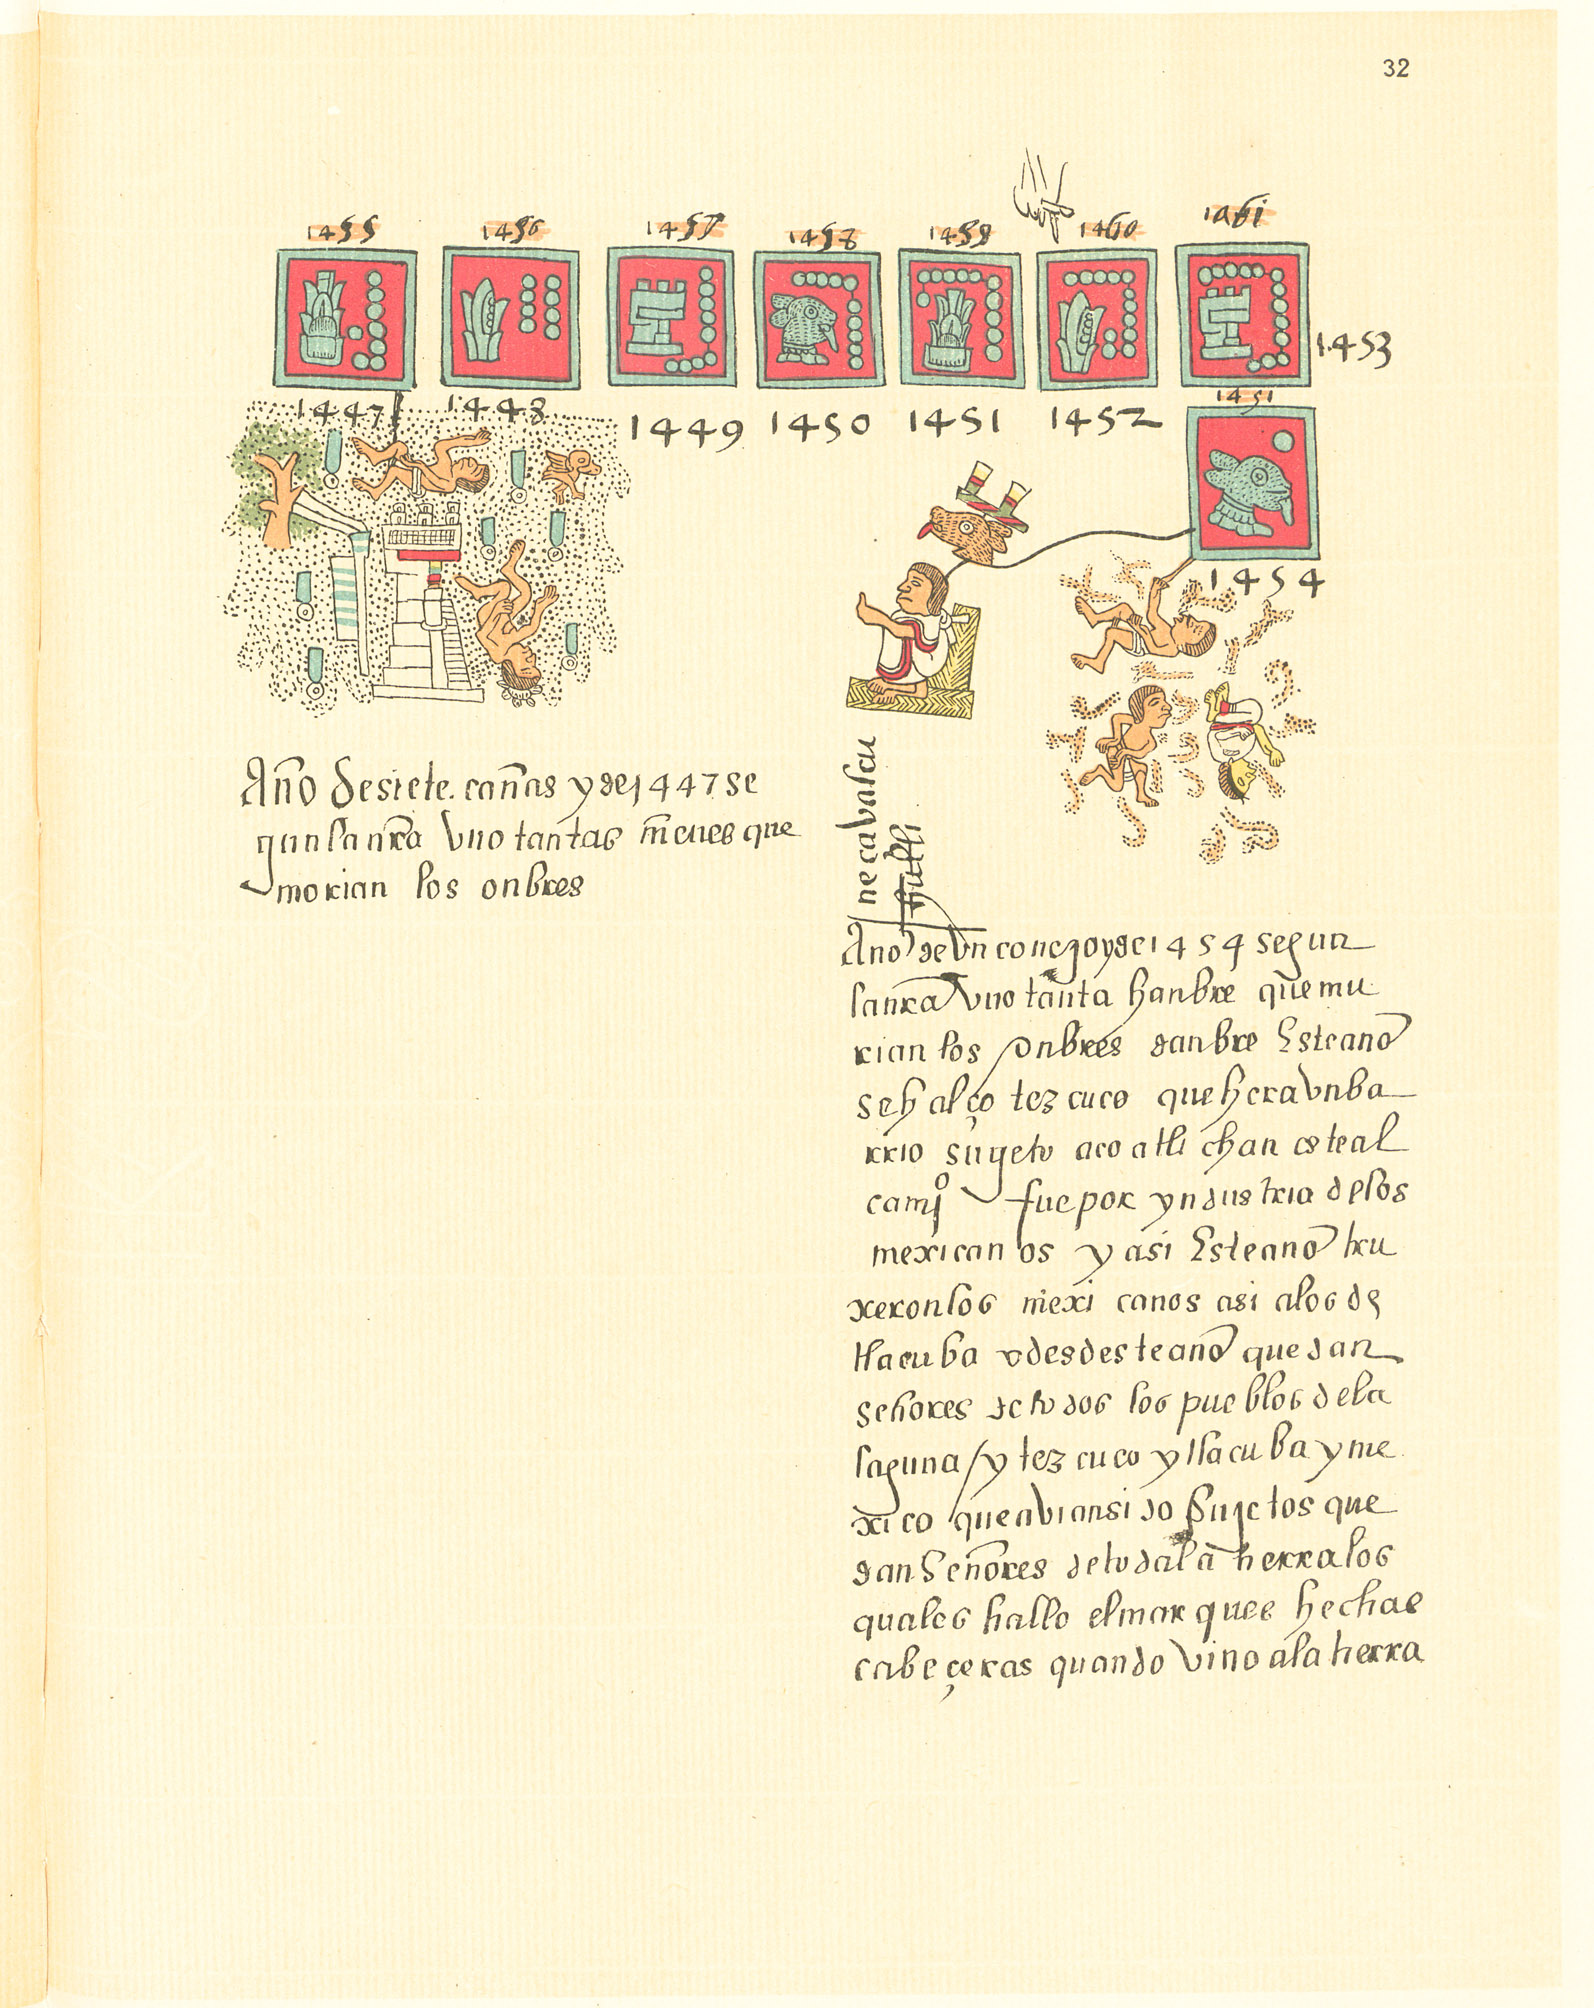 32
1455 1456 1457 1458 1459 1460 1461
1453
1447 1448 1449 1450 1451 1452
1451
1454
Año de siete cañas y de 1447 se
gun la nr̃a vuo tantas nieues que
morian los onbres
necavalcu
Año de vn conejo y de 1454 segun
la nr̃a vuo tanta hanbre que mu
rian los onbres danbre Este año
se h alço tezcuco que hera vn ba
rrio sugeto a coatlichan este al
camj º fue por yndustria de los
mexicanos y asi Este año tru
xeron los mexicanos asi a los de
tlacuba v desde este año quedan
señores de todos los pueblos de la
laguna / y tezcuco y tlacuba y me
xico que avian sido Sujetos que
dan Señores de toda la tierra los
quales hallo el marques hechas
cabeçeras quando vino a la tierra